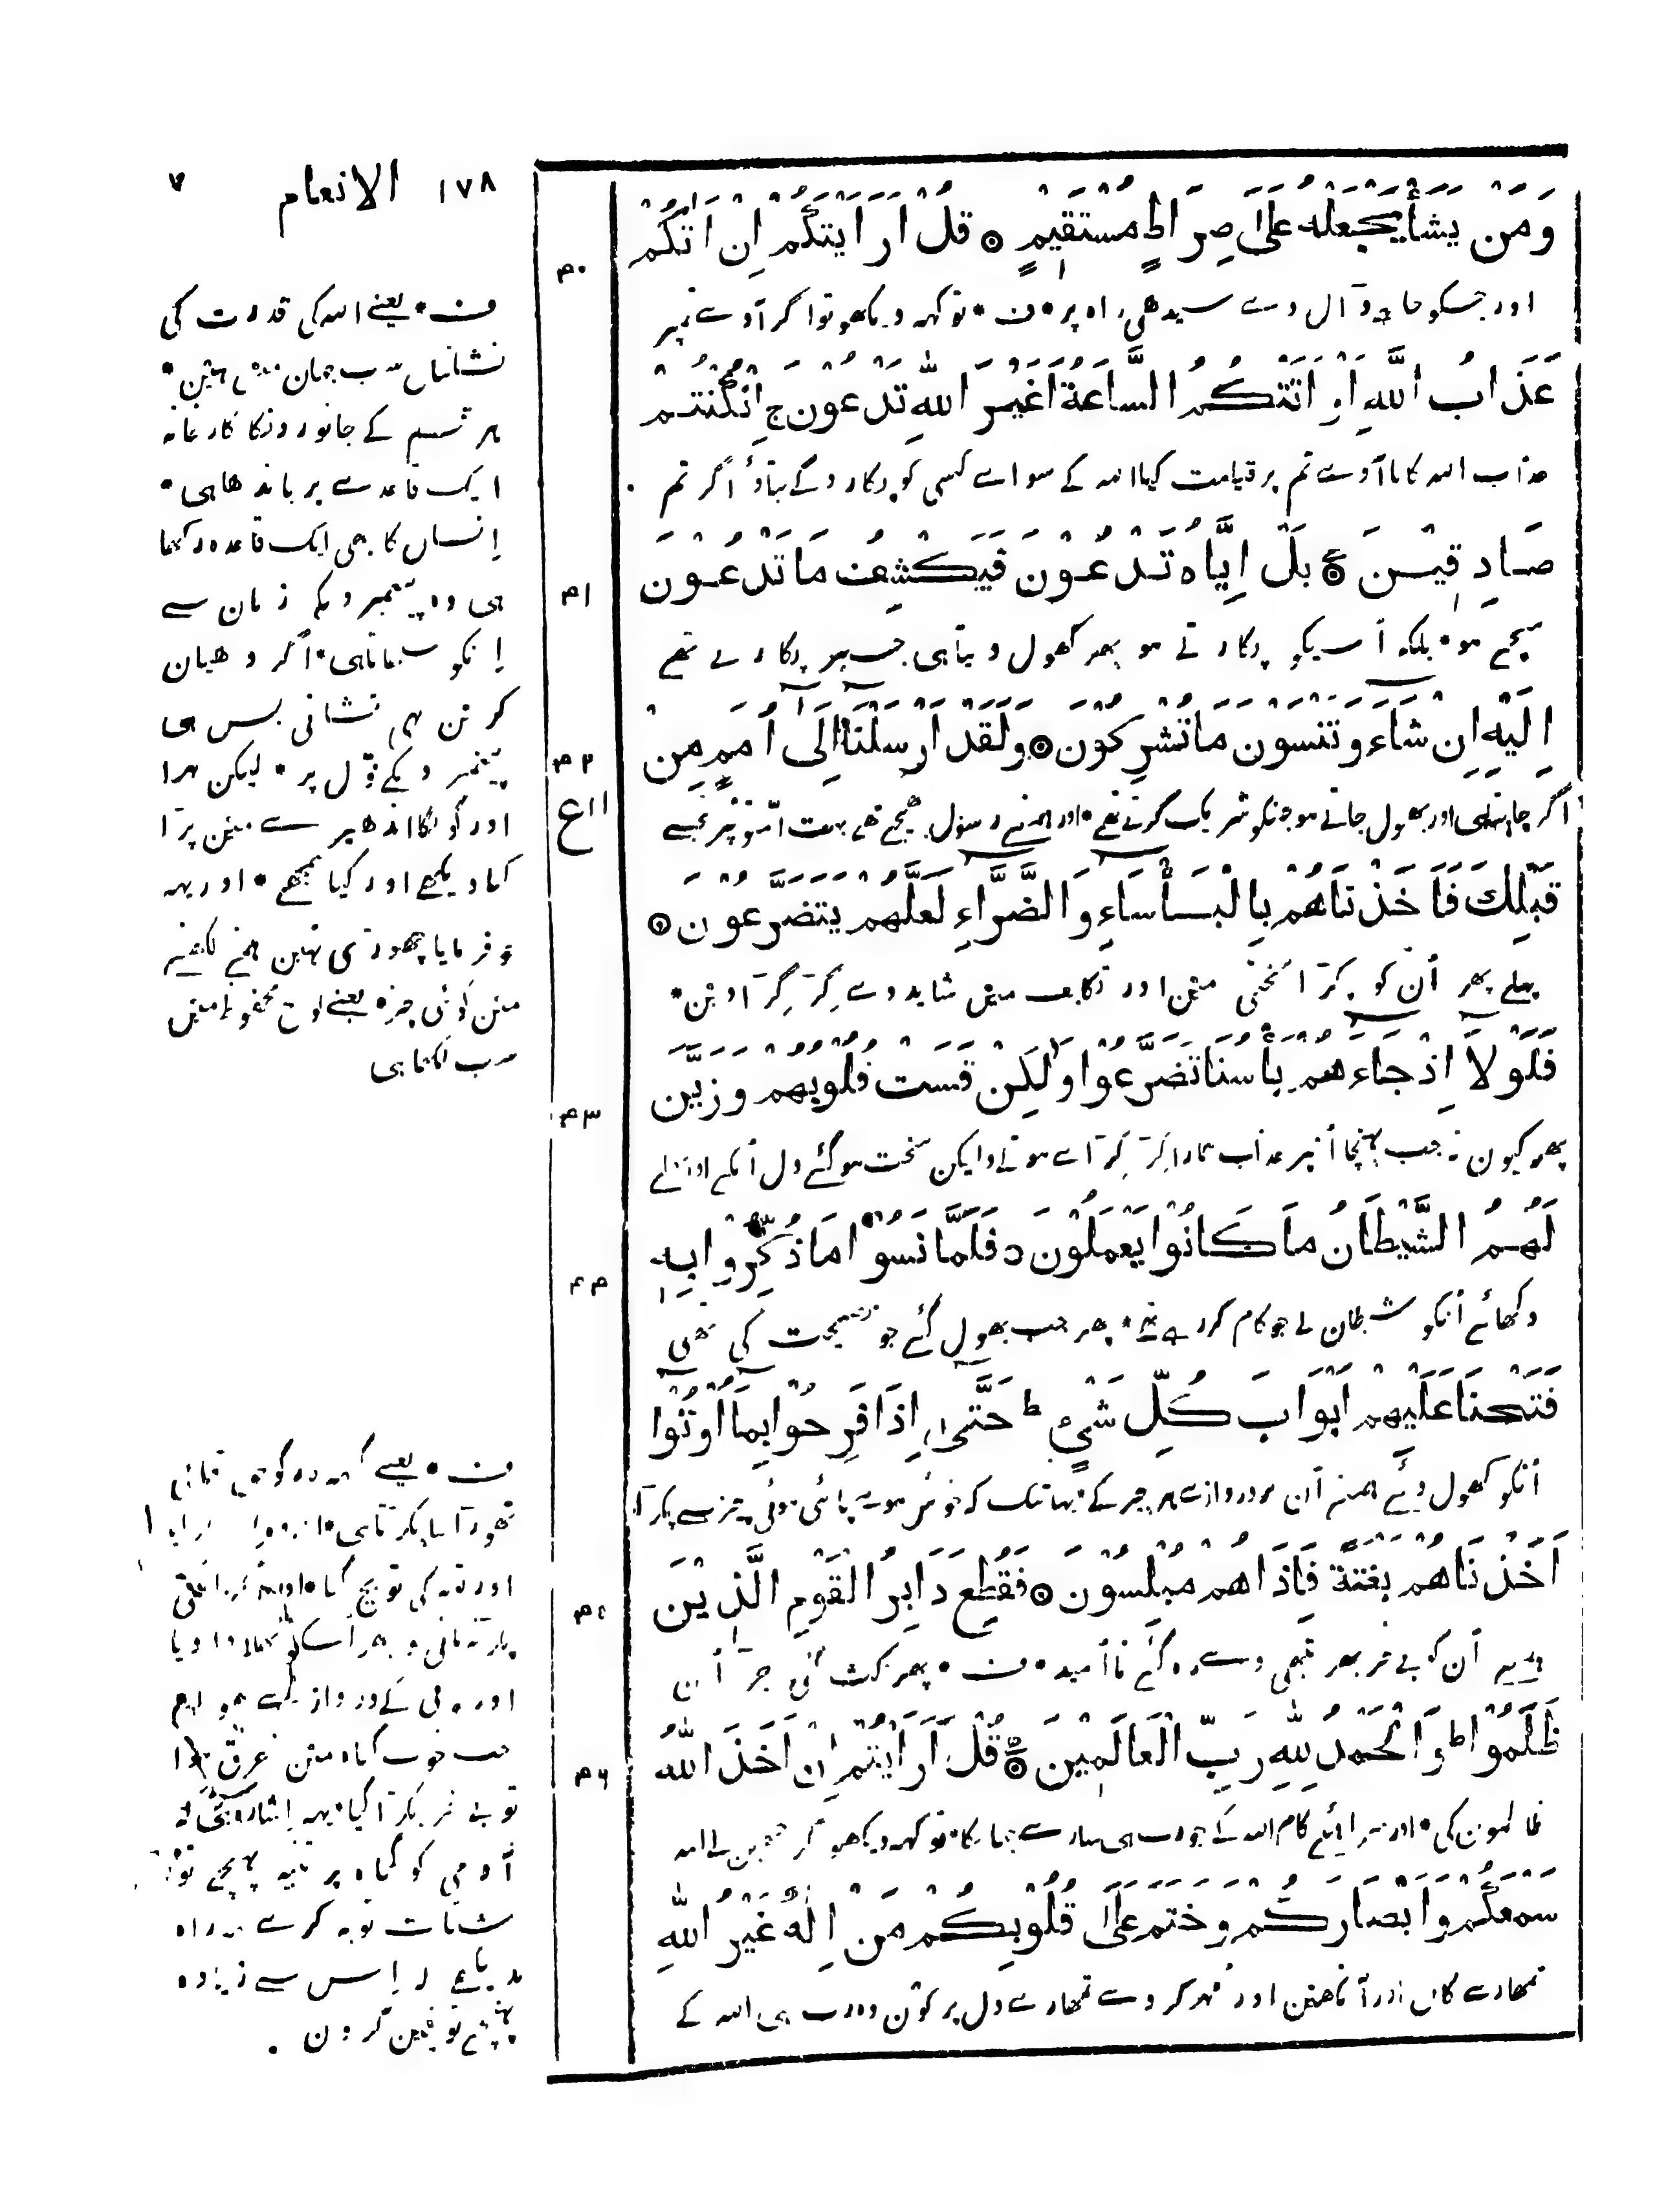 ١٧٨ الانعام ٧
وَمَنْ يَشَأْ يَجْعَلْهُ عَلَىٰ صِرَاطٍ مُسْتَقِيمٍ ۝ قُلْ اَرَاَيْتَكُمْ اِنْ اَتٰكُمْ
٤٠
اور جسکو چاہے ڈال دے سیدھی راہ پر * ف * تو کہہ دیکھو تو اگر آوے تمپر
عَذَابُ اللّٰهِ اَوْ اَتَتْكُمُ السَّاعَةُ اَغَيْرَ اللّٰهِ تَدْعُونَ ج اِنْ كُنْتُمْ
عذاب اللہ کا یا آوے تم پر قیامت کیا اللہ کے سواے کسی کو پکارو گے بتاؤ اگر تم
صَادِقِيْنَ ۝ بَلْ اِيَّاهُ تَدْعُوْنَ فَيَكْشِفُ مَا تَدْعُوْنَ
٤١
سچے ہو * بلکہ اُسیکو پکارتے ہو پھر کھول دیتاہی جسپر پکارتے تھے
اِلَيْهِ اِنْ شَاءَ وَتَنْسَوْنَ مَا تُشْرِكُوْنَ ۝ وَلَقَدْ اَرْسَلْنَا اِلَى اُمَمٍ مِنْ
٤٢
١١ع
اگر چاہتاہی اور بھول جاتے ہو جنکو شریک کرتے تھے * اور ہمنے رسول بھیجے تھے بہت امتوں پر تجسے
قَبْلِكَ فَاَخَذْنَاهُمْ بِالْبَأْسَاءِ وَالضَّرَّاءِ لَعَلَّهُمْ يَتَضَرَّعُوْنَ ۝
پہلے پھر اُن کو پکڑا سختی میں اور تکلیف میں شاید وے گڑگڑاویں *
فَلَوْلَا اِذْ جَاءَهُمْ بَأْسُنَا تَضَرَّعُوْا وَلٰكِنْ قَسَتْ قُلُوْبُهُمْ وَزَيَّنَ
٤٣
پھر کیوں نہ جب پہنچا اُنپر عذاب ہمارا گڑگڑاے ہوتے ولیکن سخت ہوگئے دل اُنکے اور بھلے
لَهُمُ الشَّيْطَانُ مَا كَانُوْا يَعْمَلُوْنَ ۝ فَلَمَّا نَسُوْا مَا ذُكِّرُوْا بِهٖ
٤٤
دکھائے اُنکو شیطان نے جو کام کررہے تھے * پھر جب بھول گئے جو نصیحت کی تھی
فَتَحْنَا عَلَيْهِمْ اَبْوَابَ كُلِّ شَيْءٍ ط حَتّٰى اِذَا فَرِحُوْا بِمَا اُوْتُوْا
اُنکو کھول دئے ہمنے اُن پر دروازے ہر چیز کے * یہانتک کہ خوش ہوے پائی ہوئی چیز سے پکڑا
اَخَذْنَاهُمْ بَغْتَةً فَاِذَاهُمْ مُبْلِسُوْنَ ۝ فَقُطِعَ دَابِرُ الْقَوْمِ الَّذِيْنَ
٤٥
ہمنے اُن کو بے خبر پھر تبھی وے رہ گئے نا اُمید * ف * پھر کٹ گئی جڑ اُن
ظَلَمُوْا ط وَالْحَمْدُ لِلّٰهِ رَبِّ الْعَالَمِيْنَ ۝ قُلْ اَرَاَيْتُمْ اِنْ اَخَذَ اللّٰهُ
٤٦
ظالموں کی * اور سراہئے کام اللہ کے جو رب ہی سارے جہان کا * تو کہہ دیکھو اگر چھین لے اللہ
سَمْعَكُمْ وَاَبْصَارَكُمْ وَخَتَمَ عَلٰى قُلُوْبِكُمْ مَنْ اِلٰهٌ غَيْرُ اللّٰهِ
تمھارے کان اور آنکھیں اور مُہر کر دے تمھارے دل پر کون وہ رب ہی اللہ کے
ف * یعنے اللہ کی قدرت کی
نشانیاں سب جہان میں ہیں *
ہر قسم کے جانوروں کا کارخانہ
ایک قاعدے پر باندھا ہی *
اِنسان کا بھی ایک قاعدہ رکھا
ہی وہ پیغمبروں کی زبان سے
اِنکو سکھاتاہی * اگر دھیان
کریں یہی نشانی بس ہی
پیغمبروں کے قول پر * لیکن بہرا
اور گونگا اندھیرے میں پڑا
کیا دیکھے اور کیا سمجھے * اور یہہ
جو فرمایا چھوڑی نہیں ہمنے لکھنے
میں کوئی چیز یعنے لوح محفوظ میں
سب لکھا ہی
ف * یعنے گنہگار کو اللہ تعالیٰ
تھوڑا سا پکڑتاہی * اگر وہ
اور توبہ کی تو بچ گیا * اور اگر اتنی
پکڑ نہ مانی تو پھر اُسکو بھلاوا دیا
اور خوبی کے دروازے کھولے
جب خوب گناہ میں غرق ہوا
تو بے خبر پکڑا گیا * یہہ اِشارہ ہی کہ
آدمی کو گناہ پر تنبیہ پہنچے تو
شتاب توبہ کرے یہہ راہ
نہ دیکھے کہ اِس سے زیادہ
پہنچے تو یقین کروں .